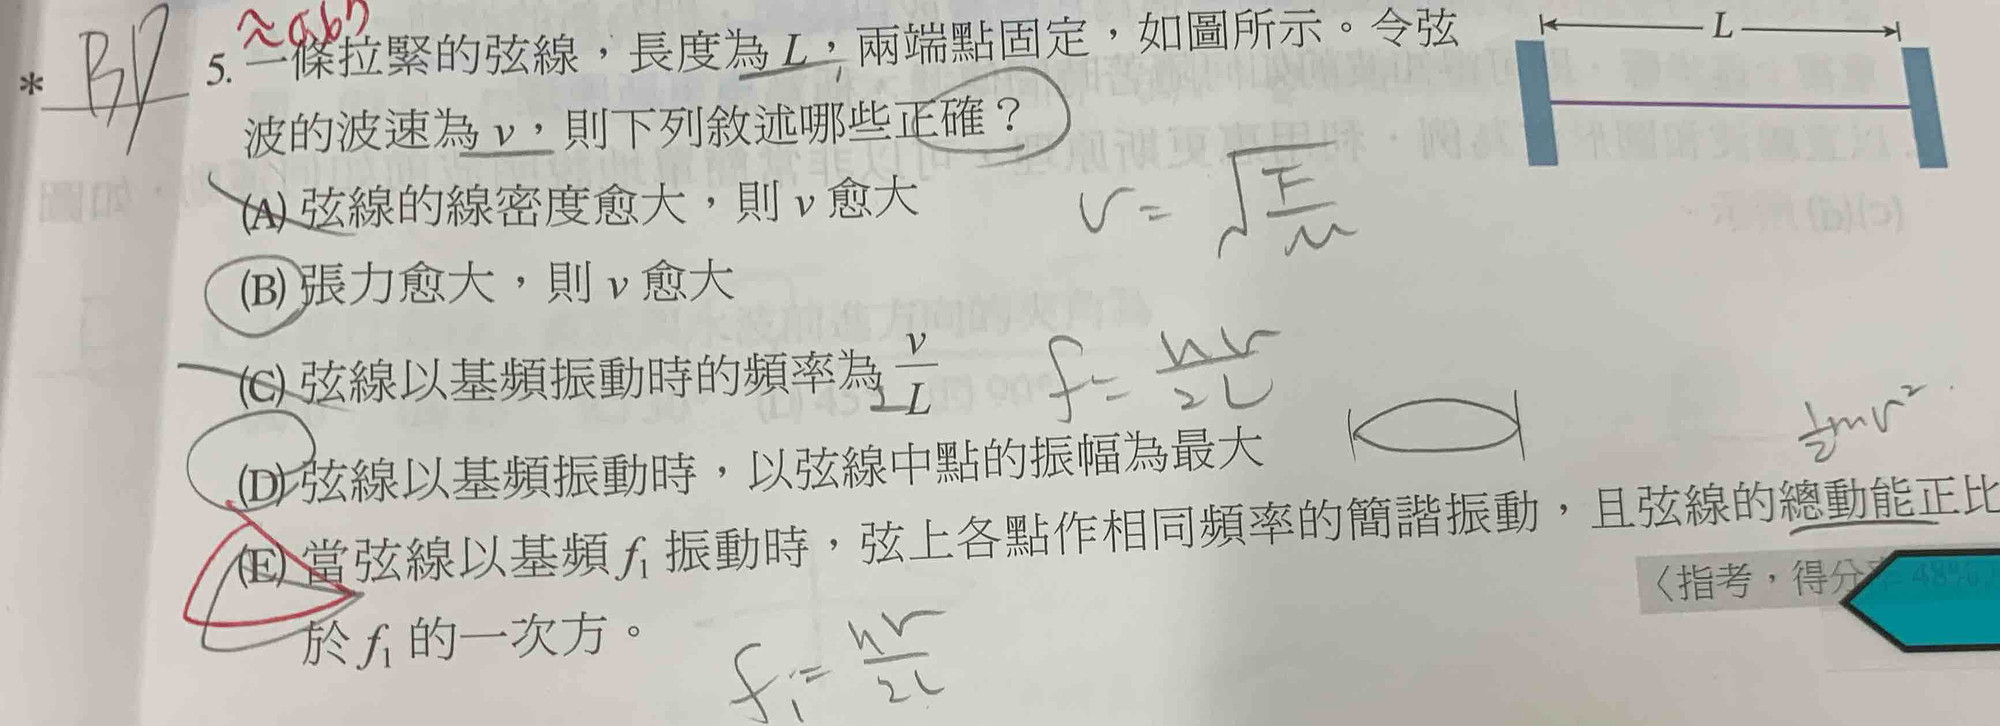 * BD
5. 一條拉緊的弦線，長度為 L，兩端點固定，如圖所示。令弦
L
波的波速為 v，則下列敘述哪些正確？
(A) 弦線的線密度愈大，則 v 愈大
v = √F/μ
(B) 張力愈大，則 v 愈大
(C) 弦線以基頻振動時的頻率為 v/2L
f = nv/2L
(D) 弦線以基頻振動時，以弦線中點的振幅為最大
1/2 mv²
(E) 當弦線以基頻 f₁ 振動時，弦上各點作相同頻率的簡諧振動，且弦線的總動能正比
〈指考，得分率 48%
於 f₁ 的一次方。
f₁ = nv/2L